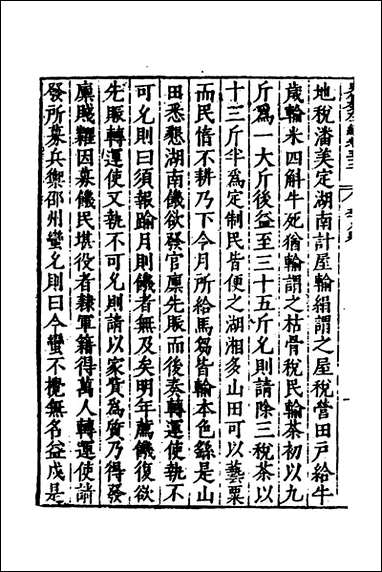 地稅潘美定湖南計屋輸絹謂之屋稅營田戶給牛
歲輸米四斛牛死猶輸謂之枯骨稅民輸茶初以九
斤爲一大斤後益至三十五斤允則請除三稅茶以
十三斤半爲定制民皆便之湖湘多山田可以藝粟
而民惰不耕乃下令月所給馬芻皆輸本色繇是山
田悉懇湖南饑欲發官廪先賑而後奏轉運使執不
可允則曰須報踰月則饑者無及矣明年薦饑復欲
先賑轉運使又執不可允則請以家質爲質乃得發
廪賤糶因募饑民堪役者隸軍籍得萬人轉運使請
發所募兵禦邵州蠻允則曰今蠻不攪無名益戍是